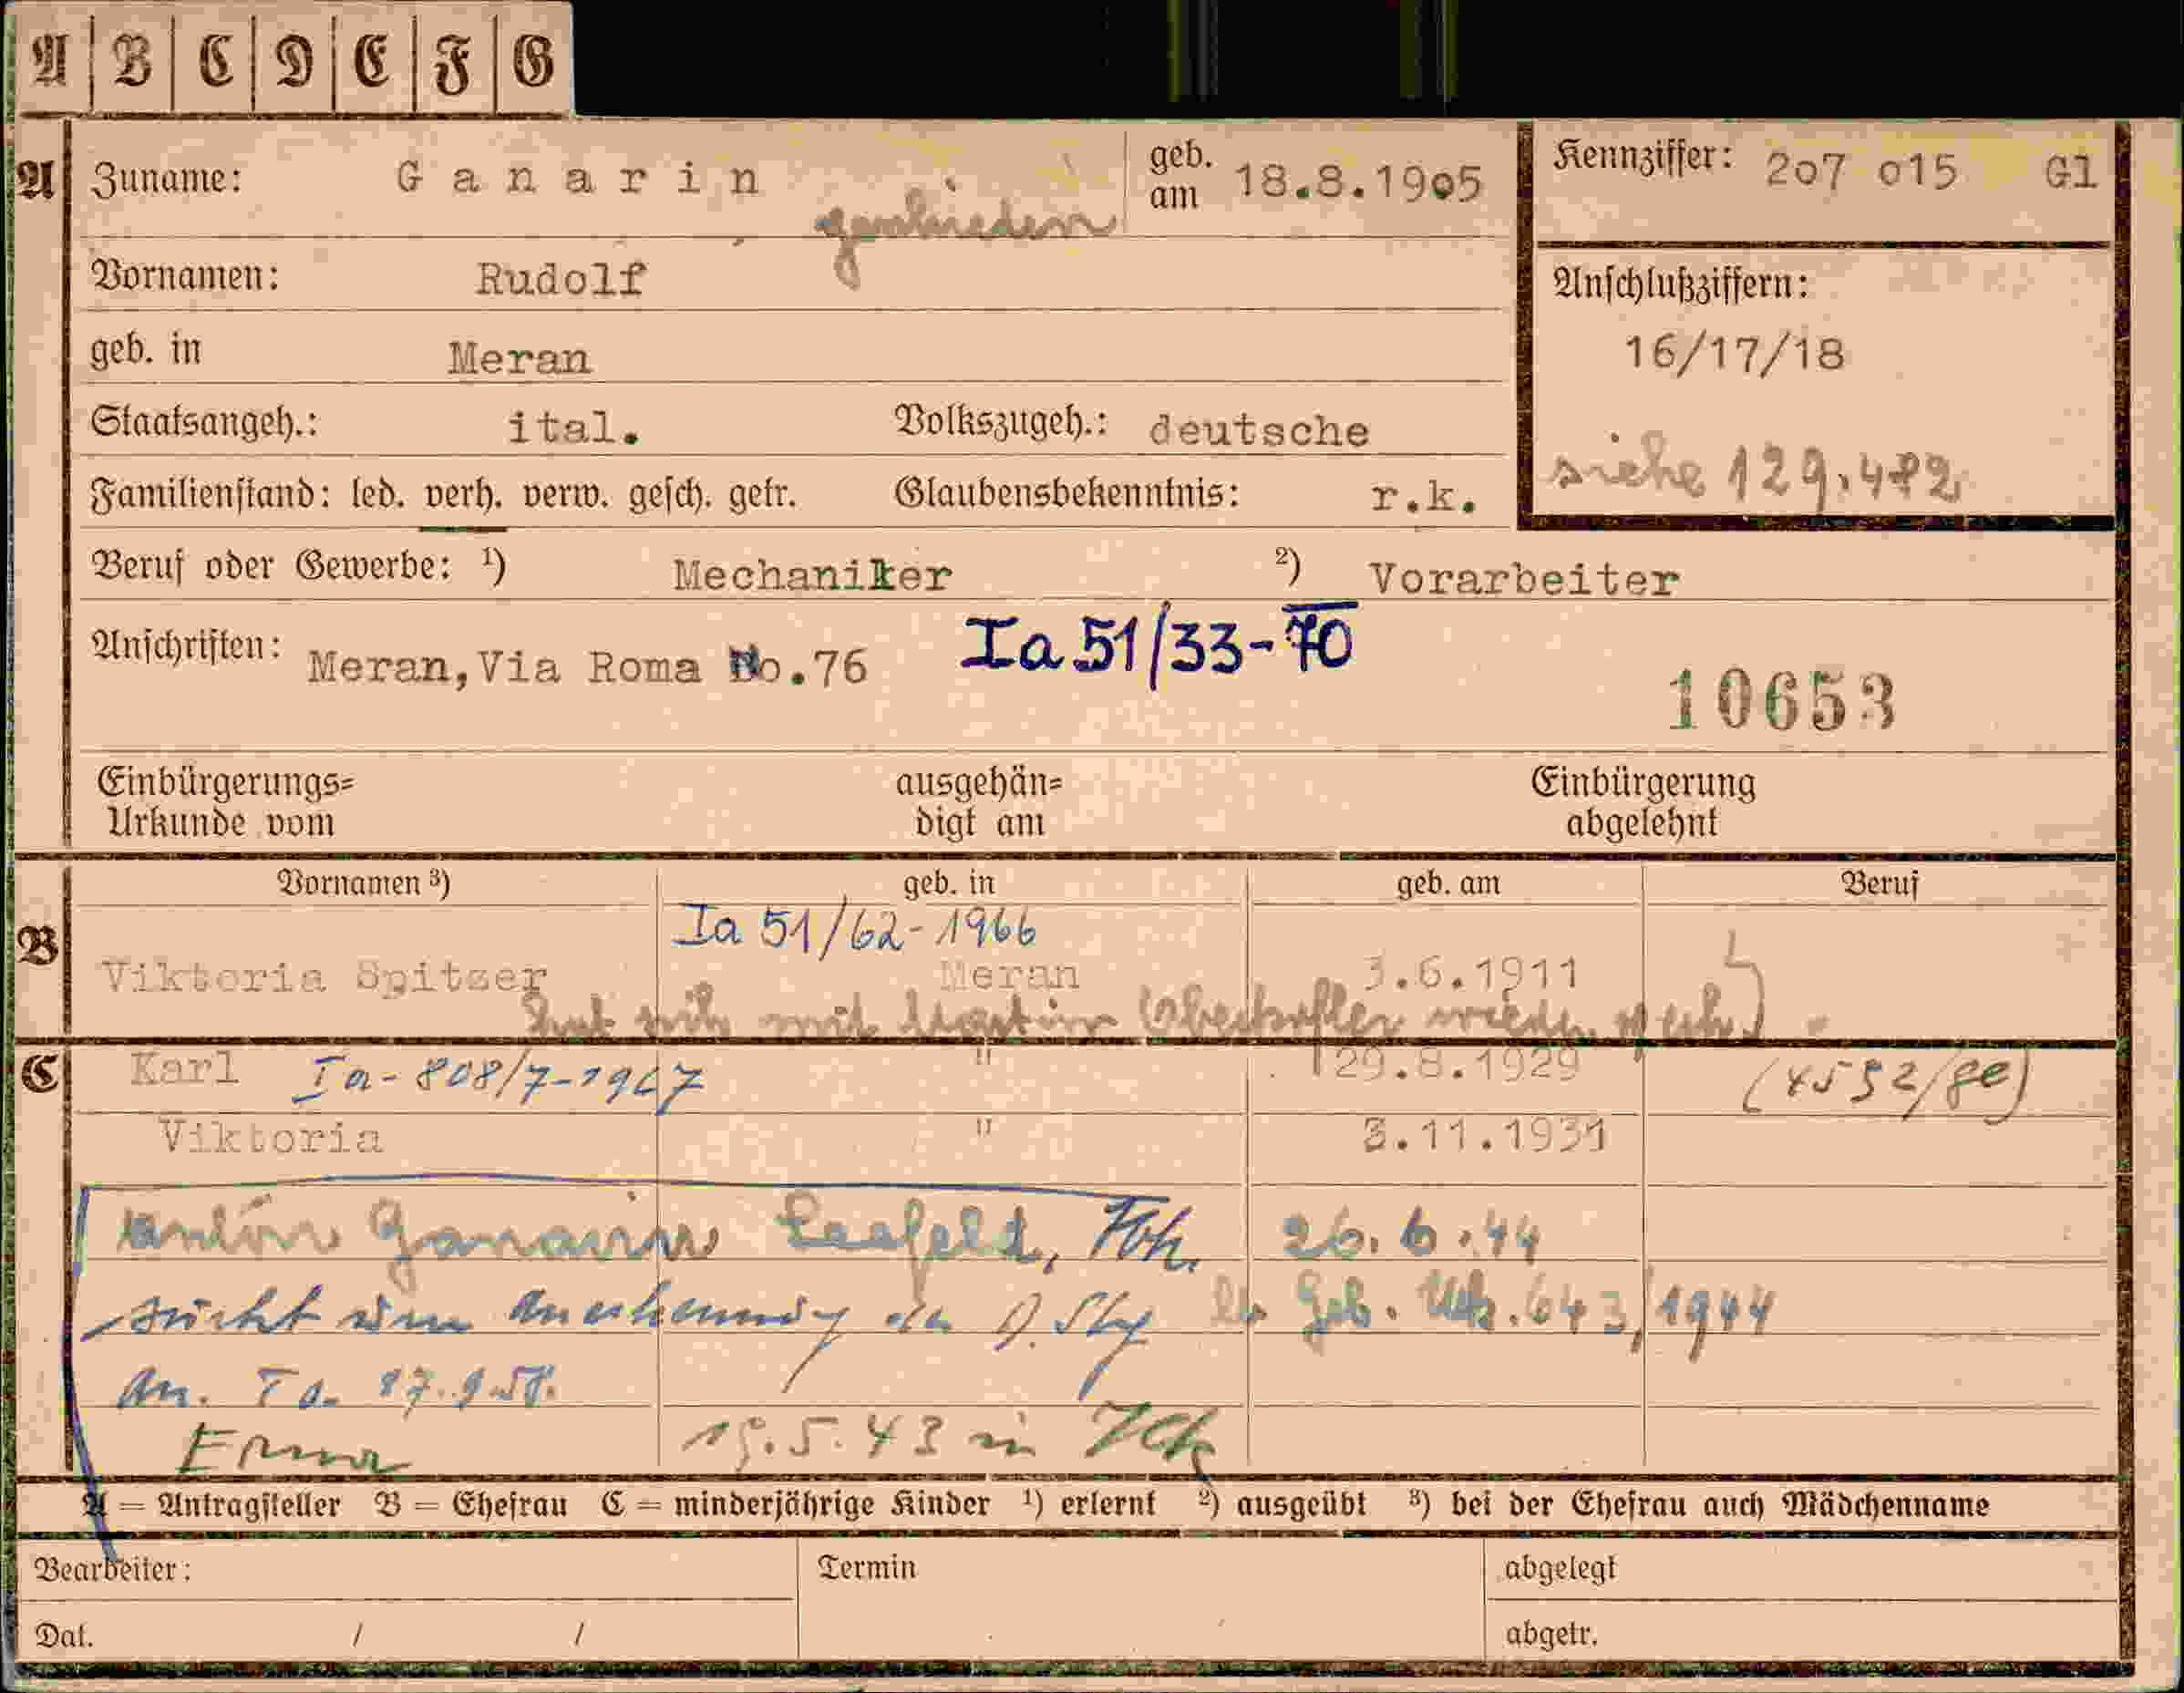 A B C D E F G
A Zuname: Ganarin geb. am 18.8.1905 Kennziffer: 207 015 Gl
geschieden
Vornamen: Rudolf Anschlußziffern:
geb. in Meran 16/17/18
Staatsangeh.: ital. Volkszugeh.: deutsche siehe 129.482
Familienstand: led. verh. verw. gesch. getr. Glaubensbekenntnis: r.k.
Beruf oder Gewerbe: ¹) Mechaniker ²) Vorarbeiter
Anschriften: Meran, Via Roma No.76 Ia 51/33-70
10653
Einbürgerungs= ausgehän= Einbürgerung
Urkunde vom digt am abgelehnt
Vornamen ³) geb. in geb. am Beruf
Ia 51/62-1966
B Viktoria Spitzer Meran 3.6.1911
hat sich mit Martin wieder
C Karl Ia-808/7-1967 " 29.8.1929
Viktoria " 3.11.1931
Anton Ganarin Seefeld, 26.6.44
sucht um Anerkennung der D. Stg Geb. 643/1944
An. Ia. 17.9.58.
Erna 15.5.43 in Ibk
A = Antragsteller B = Ehefrau C = minderjährige Kinder ¹) erlernt ²) ausgeübt ³) bei der Ehefrau auch Mädchenname
Bearbeiter: Termin abgelegt
Dat. / / abgetr.